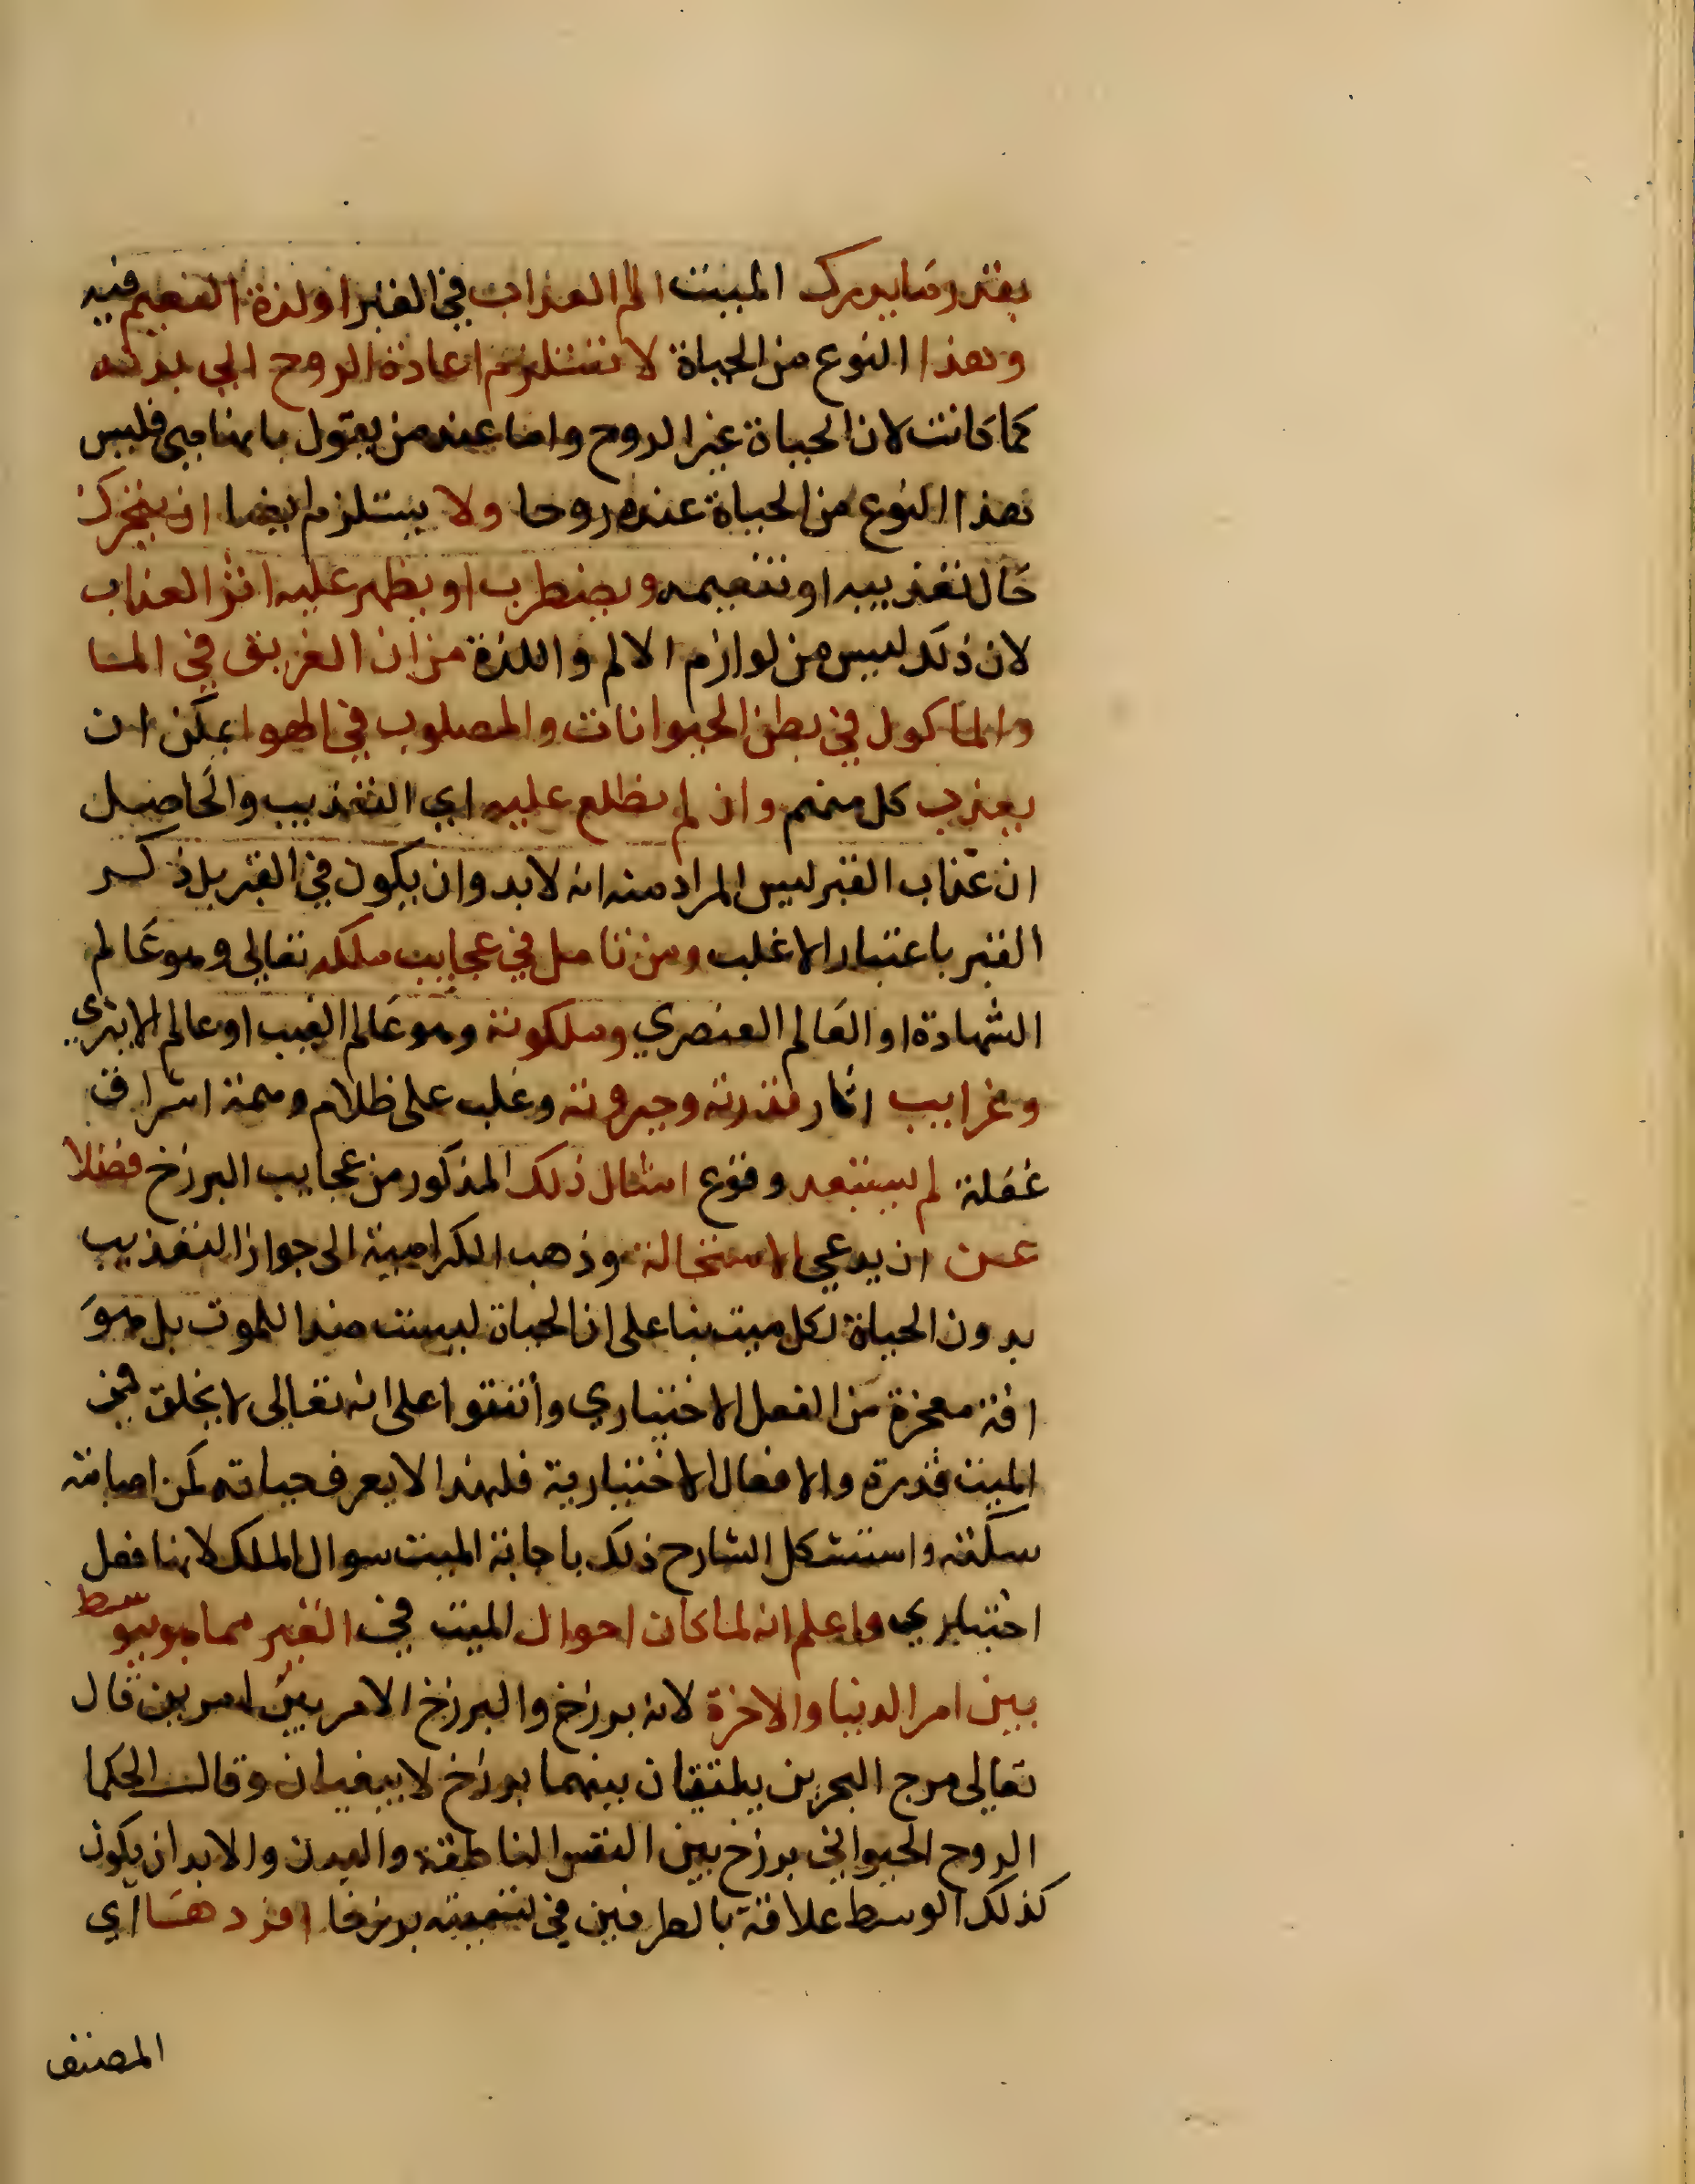 بقدر ما يدرك الميت الم العذاب في القبر او لذة النعيم فيه
وهذا النوع من الحياة لا تستلزم اعادة الروح الي بدنه
كما كانت لان الحياة غير الروح واما عند من يقول بانها هي فليس
هذا النوع من الحياة عنده روحا ولا يستلزم ايضا ان يتحرك
حال تعذيبه او تنعيمه ويضطرب او يظهر عليه اثر العذاب
لان ذلك ليس من لوازم الالم واللذة من ان الغريق في الما
والماكول في بطن الحيوانات والمصلوب في الهوا يمكن ان
يعذب كل منهم وان لم نطلع عليه اي التعذيب والحاصل
ان عذاب القبر ليس المراد منه انه لابد وان يكون في القبر بل ذكر
القبر باعتبار الاغلب ومن تامل في عجايب ملكه تعالي وهو عالم
الشهادة او العالم العنصري وملكوته وهو عالم الغيب او عالم الاثيري
وغرايب اثار قدرته وجبروته وغلب على ظلام وهمه اشراق
عقله لم يستبعد وقوع امثال ذلك المذكور من عجايب البرزخ فضلا
عن ان يدعي الاستحالة وذهب الكرامية الى جواز التعذيب
بدون الحياة لكل ميت بنا على ان الحياة ليست ضدا للموت بل هو
افة معجزة من الفعل الاختياري واتفقوا على انه تعالى لا يخلق في
الميت قدرة والافعال الاختيارية فلهذا لا يعرف حياته كمن اصابته
سكتة واستشكل الشارح ذلك باجابة الميت سوال الملك لانها فعل
اختياري واعلم انه لما كان احوال الميت في القبر مما هو يتوسط
بين امر الدنيا والاخرة لانه برزخ والبرزخ الامر بين امرين قال
تعالى مرج البحرين يلتقيان بينهما برزخ لا يبغيان وقالت الحكما
الروح الحيواني برزخ بين النفس الناطقة والبدن والابد ان يكون
كذلك الوسط علاقة بالطرفين في تسميته برزخا افردها اي
المصنف